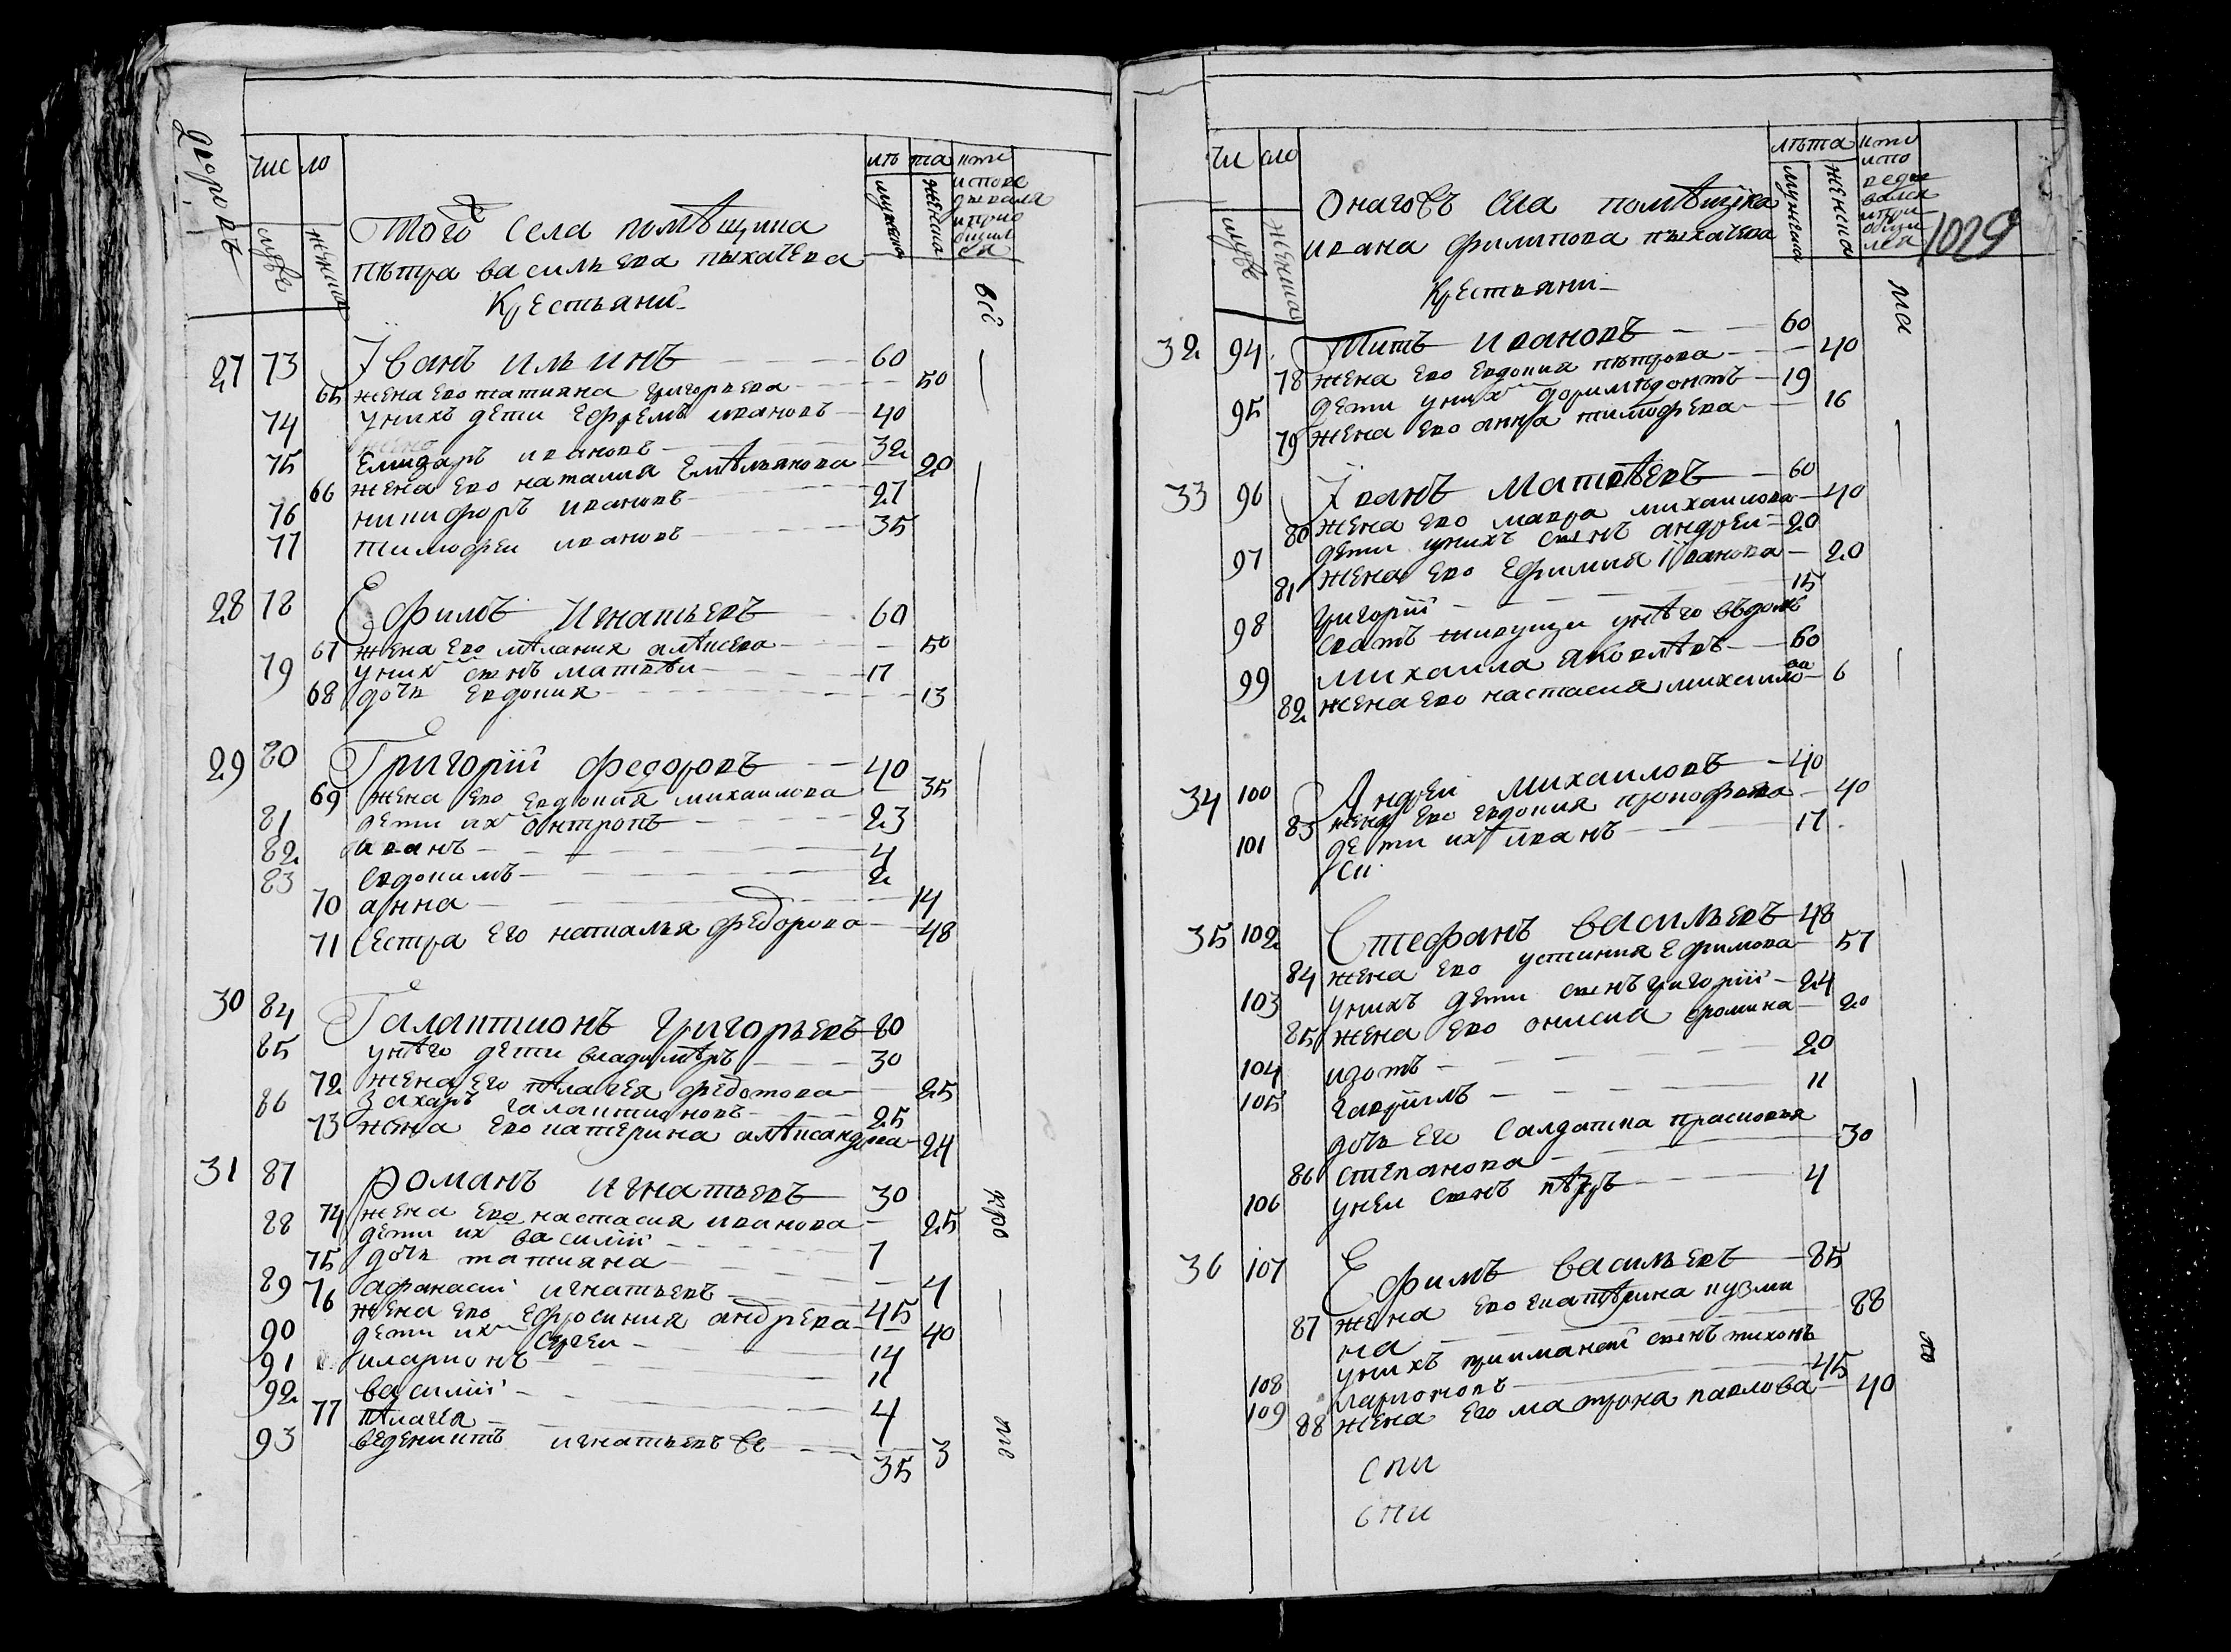 дворовъ
чис ло
мужс
женска
Того села помѣщика
пѣтра васильева пыхачева
крестьяни
лѣ та
мужска
женска
27 73 Іванъ ильинъ 60
65 жена ево татияна григорьева 50
74 у нихъ дети ефремъ ивановъ 40
75 Елизаръ ивановъ 32
66 жена ево наталия Емѣльянова 20
76 никифоръ ивановъ 27
77 тимофеи ивановъ 35
28 78 Ефимъ Игнатьевъ 60
67 жена ево мѣлания алѣксева 50
79 у них сынъ матвѣи 17
68 дочь евдокия 13
29 80 Григориі федоровъ 40
69 жена ево евдокия михаилова 35
81 дети их антропъ 23
82 иванъ 4
83 евдокимъ 2
70 анна 14
71 Сестра его наталья федорова 48
30 84 Галактионъ григорьевъ 80
85 у нѣго дети владимѣръ 30
72 жена его пѣлагея федотова 25
86 Захаръ галактионовъ 25
73 жена ево катерина алѣксандрова 24
31 87 Романъ игнатьевъ 30
74 жена ево настасия иванова 25
88 дети их василиі 7
75 дочь татияна 4
89 афонасиі игнатьевъ 45
76 жена ево ефросиния андрева 40
90 дети их сергеи 14
91 иларионъ 11
92 василиі 4
77 пѣлагея 3
93 веденихтъ игнатьевъ 35
всѣ
кро
мѣ
чи сло
мужс
женска
Онагожъ села помѣщика
ивана филипова пыхачева
крестьяни
лѣта
мужска
женска
1029
32 94 Титъ ивановъ 60
78 жена ево евдокия пѣтрова 40
95 дети у них доримѣдонтъ 19
79 жена ево анна тимофева 16
33 96 Іванъ Матвѣевъ 60
80 жена ево мавра михаилова 40
97 дети у нихъ сынъ андреи 20
81 жена ево Ефимия іванова 20
98 григориі 15
сватъ живущи у нѣго въ домѣ
99 михаила яковлѣвъ 60
82 жена ево настасия михаилова 6
34 100 Андреи Михаиловъ 40
83 жена ево евдокия прокофева 40
101 дети их иванъ 17
35 102 Стефанъ васильевъ 48
84 жена ево устиния Ефимова 57
103 у нихъ дети сынъ григориі 24
85 жена ево онисиа фомина 20
104 изотъ 20
105 гавриилъ 11
дочь его салдатка прасковья
86 степанова 30
106 у неи сынъ пѣтръ 4
36 107 Ефимъ васильевъ 85
87 жена ево екатѣрина кузми
на 88
108 у нихъ приимонаі сынъ тихонъ
109 ларионовъ 45
88 жена его матрона павлова 40
спи
спи